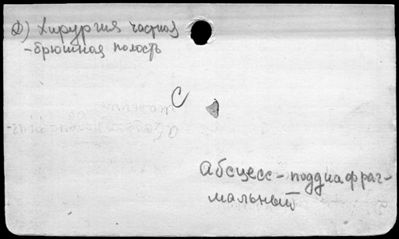 Ф) Хирургия частная
-брюшная полость
С
Абсцесс-поддиафраг-
мальный